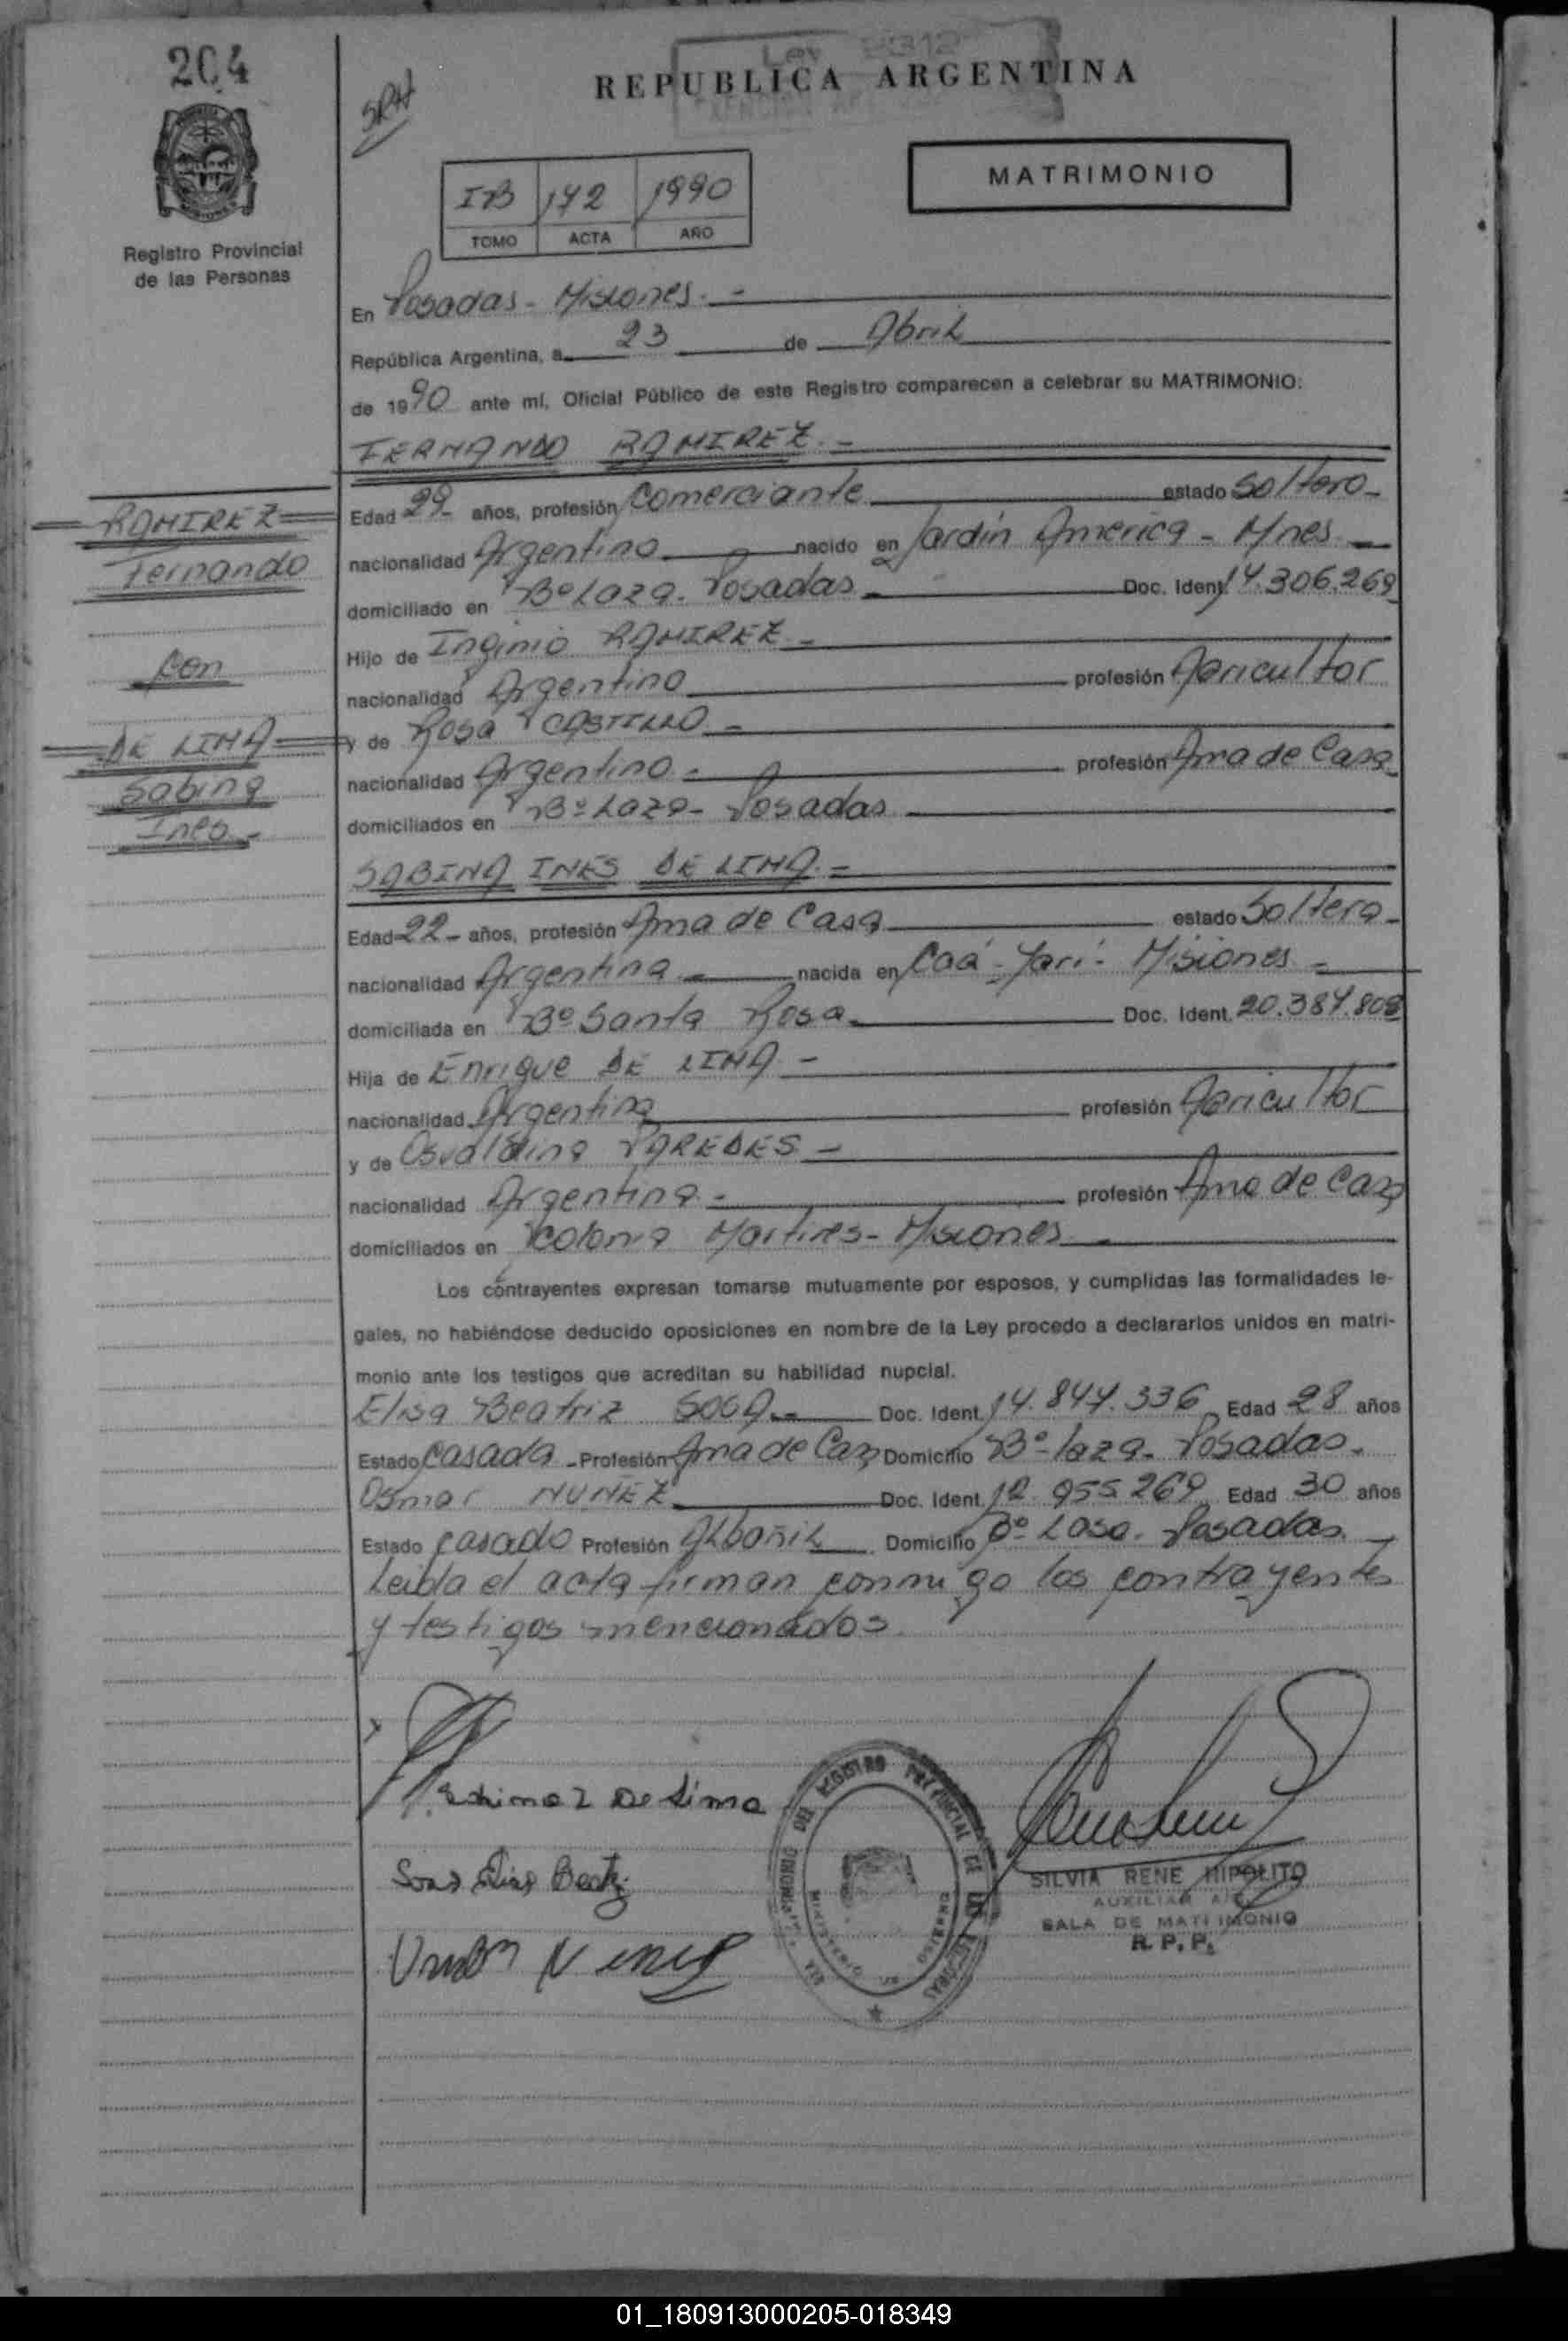 204
SRH
Ley
REPUBLICA ARGENTINA
MATRIMONIO
IB 172 1990
TOMO ACTA AÑO
Registro Provincial
de las Personas
En Posadas - Misiones. -
República Argentina, a 23 de Abril
de 1990 ante mí, Oficial Público de este Registro comparecen a celebrar su MATRIMONIO:
FERNANDO RAMIREZ. -
RAMIREZ
Fernando
con
DE LIMA
Sabina
Ines -
Edad 29 - años, profesión Comerciante estado Soltero -
nacionalidad Argentino nacido en Jardín America - Mnes -
domiciliado en Bº Laza - Posadas Doc. Ident. 14.306.268
Hijo de Inginio RAMIREZ -
nacionalidad Argentino profesión Agricultor
y de Rosa CASTILLO -
nacionalidad Argentino - profesión Ama de Casa
domiciliados en Bº Laza - Posadas
SABINA INES DE LIMA. -
Edad 22 - años, profesión Ama de Casa estado Soltera -
nacionalidad Argentina - nacida en Caá - Yarí - Misiones -
domiciliada en Bº Santa Rosa - Doc. Ident. 20.387.808
Hija de Enrique DE LIMA -
nacionalidad Argentina profesión Agricultor
y de Osvaldina PAREDES -
nacionalidad Argentina - profesión Ama de Casa
domiciliados en Colonia Martires - Misiones
Los contrayentes expresan tomarse mutuamente por esposos, y cumplidas las formalidades le-
gales, no habiéndose deducido oposiciones en nombre de la Ley procedo a declararlos unidos en matri-
monio ante los testigos que acreditan su habilidad nupcial.
Elisa Beatriz SOSA - Doc. Ident. 14.847.336 Edad 28 años
Estado Casada - Profesión Ama de Casa Domicilio Bº - Laza - Posadas -
Osmar NUÑEZ Doc. Ident. 12.955.269 Edad 30 años
Estado Casado Profesión Albañil Domicilio Bº Lasa - Posadas. -
Leida el acta firman conmigo los contrayentes
y testigos mencionados
De Lima
Sosa Elisa Beatriz
DEL REGISTRO PROVINCIAL DE LAS PERSONAS
MINISTERIO DE GOBIERNO
SILVIA RENE HIPOLITO
AUXILIAR
SALA DE MATRIMONIO
R. P. P.
01_180913000205-018349